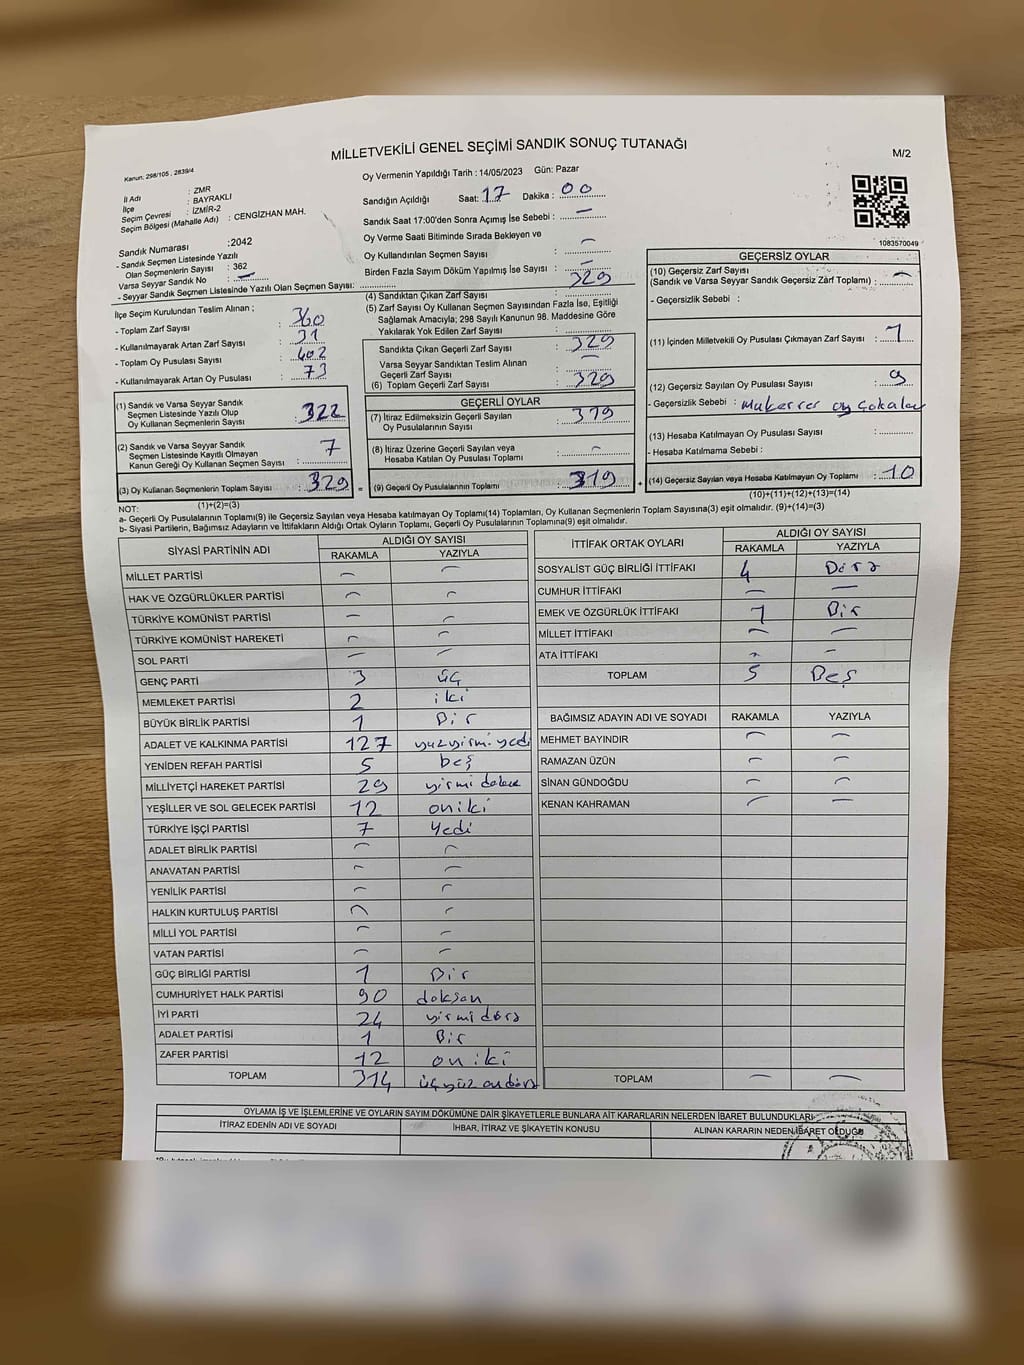 MİLLETVEKİLİ GENEL SEÇİMİ SANDIK SONUÇ TUTANAĞI
M/2
Kanun: 298/105, 2839/4
Oy Vermenin Yapıldığı Tarih : 14/05/2023 Gün: Pazar
İl Adı : ZMR
İlçe : BAYRAKLI
Seçim Çevresi : İZMİR-2
Seçim Bölgesi (Mahalle Adı) : CENGİZHAN MAH.
Sandığın Açıldığı Saat: 17 Dakika : 00
Sandık Saat 17:00'den Sonra Açımış İse Sebebi : —
Oy Verme Saati Bitiminde Sırada Bekleyen ve
Oy Kullandırılan Seçmen Sayısı : —
Birden Fazla Sayım Döküm Yapılmış İse Sayısı : —
1083570049
Sandık Numarası :2042
- Sandık Seçmen Listesinde Yazılı
Olan Seçmenlerin Sayısı : 362
Varsa Seyyar Sandık No : —
- Seyyar Sandık Seçmen Listesinde Yazılı Olan Seçmen Sayısı:
İlçe Seçim Kurulundan Teslim Alınan ;
- Toplam Zarf Sayısı : 360
- Kullanılmayarak Artan Zarf Sayısı : 31
- Toplam Oy Pusulası Sayısı : 402
- Kullanılmayarak Artan Oy Pusulası : 73
(1) Sandık ve Varsa Seyyar Sandık
Seçmen Listesinde Yazılı Olup
Oy Kullanan Seçmenlerin Sayısı : 322
(2) Sandık ve Varsa Seyyar Sandık
Seçmen Listesinde Kayıtlı Olmayan
Kanun Gereği Oy Kullanan Seçmen Sayısı : 7
(3) Oy Kullanan Seçmenlerin Toplam Sayısı : 329
(1)+(2)=(3)
(4) Sandıktan Çıkan Zarf Sayısı : 329
(5) Zarf Sayısı Oy Kullanan Seçmen Sayısından Fazla İse, Eşitliği
Sağlamak Amacıyla; 298 Sayılı Kanunun 98. Maddesine Göre
Yakılarak Yok Edilen Zarf Sayısı :
Sandıkta Çıkan Geçerli Zarf Sayısı : 329
Varsa Seyyar Sandıktan Teslim Alınan
Geçerli Zarf Sayısı : —
(6) Toplam Geçerli Zarf Sayısı : 329
GEÇERLİ OYLAR
(7) İtiraz Edilmeksizin Geçerli Sayılan
Oy Pusulalarının Sayısı : 319
(8) İtiraz Üzerine Geçerli Sayılan veya
Hesaba Katılan Oy Pusulası Toplamı : —
= (9) Geçerli Oy Pusulalarının Toplamı : 319
GEÇERSİZ OYLAR
(10) Geçersiz Zarf Sayısı
(Sandık ve Varsa Seyyar Sandık Geçersiz Zarf Toplamı) : —
- Geçersizlik Sebebi :
(11) İçinden Milletvekili Oy Pusulası Çıkmayan Zarf Sayısı : 1
(12) Geçersiz Sayılan Oy Pusulası Sayısı : 9
- Geçersizlik Sebebi : mukerrer oy
(13) Hesaba Katılmayan Oy Pusulası Sayısı :
- Hesaba Katılmama Sebebi :
+ (14) Geçersiz Sayılan veya Hesaba Katılmayan Oy Toplamı : 10
(10)+(11)+(12)+(13)=(14)
NOT:
a- Geçerli Oy Pusulalarının Toplamı(9) ile Geçersiz Sayılan veya Hesaba katılmayan Oy Toplamı(14) Toplamları, Oy Kullanan Seçmenlerin Toplam Sayısına(3) eşit olmalıdır. (9)+(14)=(3)
b- Siyasi Partilerin, Bağımsız Adayların ve İttifakların Aldığı Ortak Oyların Toplamı, Geçerli Oy Pusulalarının Toplamına(9) eşit olmalıdır.
SİYASİ PARTİNİN ADI ALDIĞI OY SAYISI
RAKAMLA YAZIYLA
MİLLET PARTİSİ — —
HAK VE ÖZGÜRLÜKLER PARTİSİ — —
TÜRKİYE KOMÜNİST PARTİSİ — —
TÜRKİYE KOMÜNİST HAREKETİ — —
SOL PARTİ — —
GENÇ PARTİ 3 üç
MEMLEKET PARTİSİ 2 iki
BÜYÜK BİRLİK PARTİSİ 1 Bir
ADALET VE KALKINMA PARTİSİ 127 yüzyirmi yedi
YENİDEN REFAH PARTİSİ 5 beş
MİLLİYETÇİ HAREKET PARTİSİ 29 yirmi dokuz
YEŞİLLER VE SOL GELECEK PARTİSİ 12 oniki
TÜRKİYE İŞÇİ PARTİSİ 7 Yedi
ADALET BİRLİK PARTİSİ — —
ANAVATAN PARTİSİ — —
YENİLİK PARTİSİ — —
HALKIN KURTULUŞ PARTİSİ — —
MİLLİ YOL PARTİSİ — —
VATAN PARTİSİ — —
GÜÇ BİRLİĞİ PARTİSİ 1 Bir
CUMHURİYET HALK PARTİSİ 90 doksan
İYİ PARTİ 24 yirmi dört
ADALET PARTİSİ 1 Bir
ZAFER PARTİSİ 12 on iki
TOPLAM 314 üçyüz ondört
İTTİFAK ORTAK OYLARI ALDIĞI OY SAYISI
RAKAMLA YAZIYLA
SOSYALİST GÜÇ BİRLİĞİ İTTİFAKI 4 Dört
CUMHUR İTTİFAKI — —
EMEK VE ÖZGÜRLÜK İTTİFAKI 1 Bir
MİLLET İTTİFAKI — —
ATA İTTİFAKI — —
TOPLAM 5 Beş
BAĞIMSIZ ADAYIN ADI VE SOYADI RAKAMLA YAZIYLA
MEHMET BAYINDIR — —
RAMAZAN ÜZÜN — —
SİNAN GÜNDOĞDU — —
KENAN KAHRAMAN — —
TOPLAM — —
OYLAMA İŞ VE İŞLEMLERİNE VE OYLARIN SAYIM DÖKÜMÜNE DAİR ŞİKAYETLERLE BUNLARA AİT KARARLARIN NELERDEN İBARET BULUNDUKLARI
İTİRAZ EDENİN ADI VE SOYADI İHBAR, İTİRAZ VE ŞİKAYETİN KONUSU ALINAN KARARIN NEDEN İBARET OLDUĞU